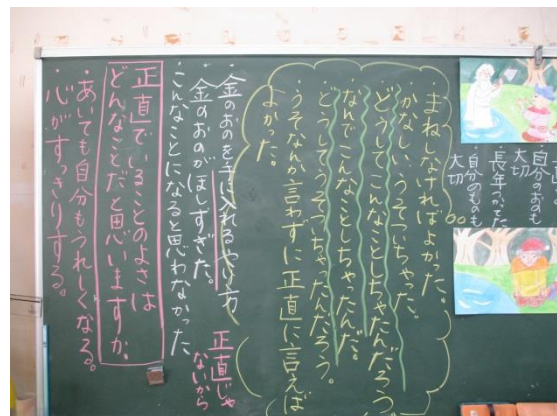 正直
自分のおのも
大切
長年つかってた
自分のものも
大切
まねしなければよかった。
かなしい、うそついちゃった。
どうしてこんなことしちゃったんだろう
なんでこんなことしちゃったんだ。
どうしてうそついちゃったんだろう。
うそなんか言わずに正直に言えば
よかった。
正直じゃ
ないから
金のおのを手に入れるやり方
・金のおのがほしすぎた。
・こんなことになると思わなかった
正直でいることのよさは
どんなことだと思いますか。
・あいても自分もうれしくなる。
・心がすっきりする。